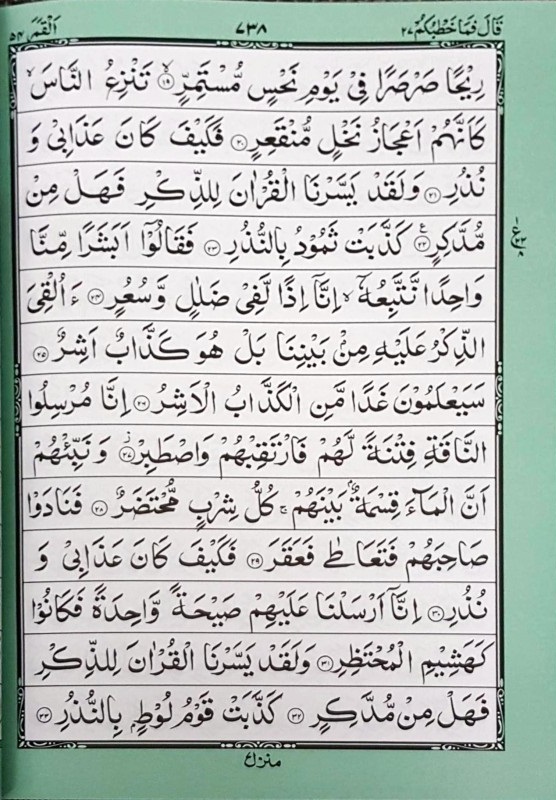 قَالَ فَمَا خَطْبُكُمْ ٢٧ ٧٣٨ اَلْقَمَر ٥٤
رِيْحًا صَرْصَرًا فِيْ يَوْمِ نَحْسٍ مُّسْتَمِرٍّ ۙ‏﴿۱۹﴾ تَنْزِعُ النَّاسَ ۙ
كَاَنَّهُمْ اَعْجَازُ نَخْلٍ مُّنْقَعِرٍ ﴿۲۰﴾ فَكَيْفَ كَانَ عَذَابِيْ وَ
نُذُرِ ﴿۲۱﴾ وَلَقَدْ يَسَّرْنَا الْقُرْاٰنَ لِلذِّكْرِ فَهَلْ مِنْ
مُّدَّكِرٍ ﴿۲۲﴾ ع كَذَّبَتْ ثَمُوْدُ بِالنُّذُرِ ﴿۲۳﴾ فَقَالُوْۤا اَبَشَرًا مِّنَّا
وَاحِدًا نَّتَّبِعُهٗۤ ۙ اِنَّاۤ اِذًا لَّفِيْ ضَلٰلٍ وَّسُعُرٍ ﴿۲۴﴾ ءَاُلْقِيَ
الذِّكْرُ عَلَيْهِ مِنْۢ بَيْنِنَا بَلْ هُوَ كَذَّابٌ اَشِرٌ ﴿۲۵﴾
سَيَعْلَمُوْنَ غَدًا مَّنِ الْكَذَّابُ الْاَشِرُ ﴿۲۶﴾ اِنَّا مُرْسِلُوا
النَّاقَةِ فِتْنَةً لَّهُمْ فَارْتَقِبْهُمْ وَاصْطَبِرْ ﴿۲۷﴾ وَنَبِّئْهُمْ
اَنَّ الْمَآءَ قِسْمَةٌۢ بَيْنَهُمْ ۚ كُلُّ شِرْبٍ مُّحْتَضَرٌ ﴿۲۸﴾ فَنَادَوْا
صَاحِبَهُمْ فَتَعَاطٰى فَعَقَرَ ﴿۲۹﴾ فَكَيْفَ كَانَ عَذَابِيْ وَ
نُذُرِ ﴿۳۰﴾ اِنَّاۤ اَرْسَلْنَا عَلَيْهِمْ صَيْحَةً وَّاحِدَةً فَكَانُوْا
كَهَشِيْمِ الْمُحْتَظِرِ ﴿۳۱﴾ وَلَقَدْ يَسَّرْنَا الْقُرْاٰنَ لِلذِّكْرِ
فَهَلْ مِنْ مُّدَّكِرٍ ﴿۳۲﴾ كَذَّبَتْ قَوْمُ لُوْطٍۭ بِالنُّذُرِ ﴿۳۳﴾